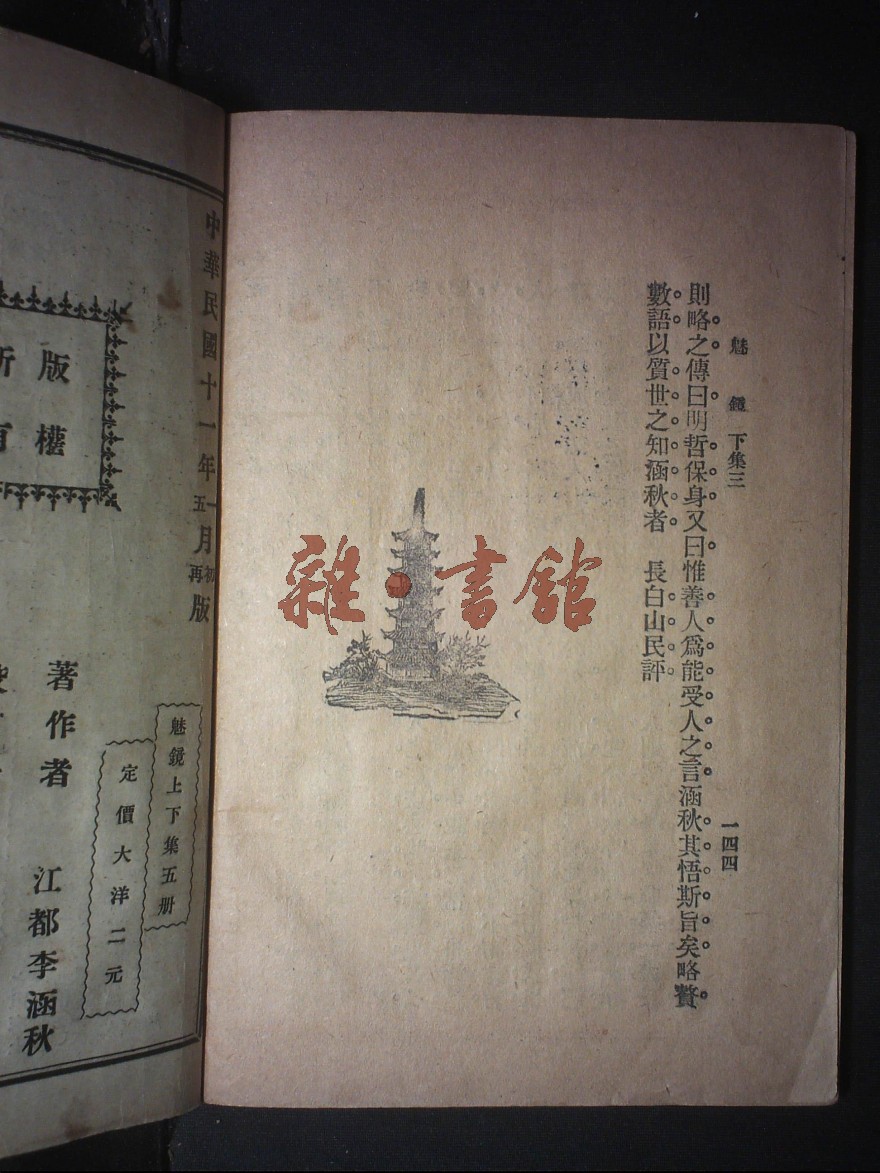 魅鏡 下集三
一四四
則略之傳曰明哲保身又曰惟善人爲能受人之言涵秋其悟斯旨矣略贅
數語以質世之知涵秋者 長白山民評
雜·書館
中華民國十一年一月初版
五 再
魅鏡上下集五册
定價大洋二元
版權
所有
著作者 江都李涵秋